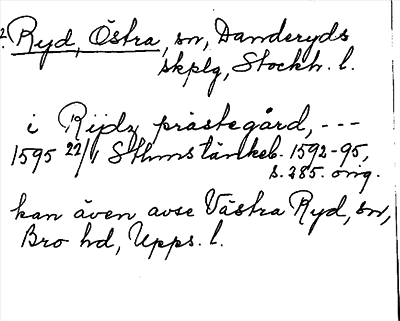 Ryd, Östra, sn, Danderyds
skplg, Stockh. l.
i Rijdz prästegård, ---
1595 22/1 Sthms tänkeb. 1592-95,
s. 285. orig.
kan även avse Västra Ryd, sn,
Bro hd, Upps. l.